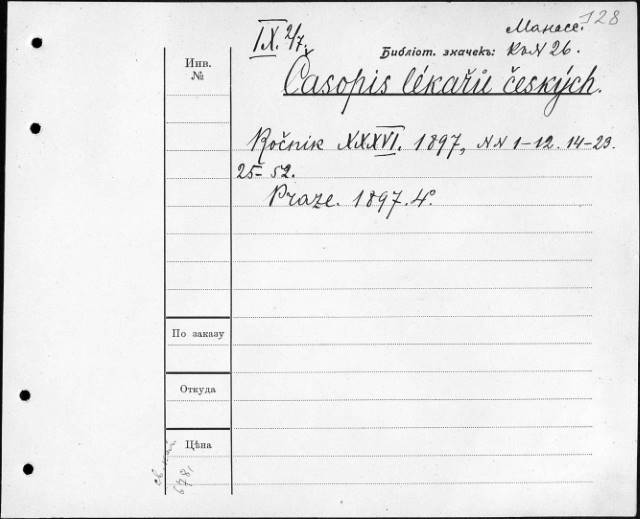 128
IX. 2/7.
Манасс.
Библіот. значекъ: КъN 26.
Инв.
№
Časopis lékařů českých.
Ročnik XXXVI. 1897, NN 1-12. 14-23.
25-52.
Praze. 1897. 4°.
По заказу
Откуда
Цѣна